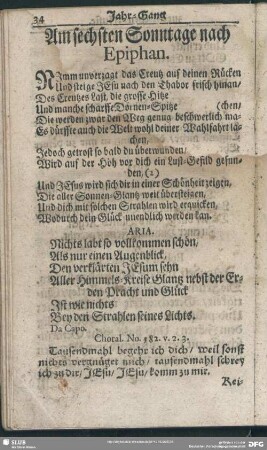 34
Jahr-Gang
Am sechsten Sonntage nach
Epiphan.
Nimm unverzagt das Creutz auf deinen Rücken
Und steige JEsu nach den Thabor frisch hinan/
Des Creutzes Last, die grosse Hitze
Und manche scharffe Dornen-Spitze (chen/
Die werden zwar den Weg genug beschwerlich ma-
Es dürffte auch die Welt wohl deiner Wahlfahrt la-
chen,
Jedoch getrost so bald du überwunden/
Wird auf der Höh vor dich ein Lust-Gefild gefun-
den, (2)
Und JEsus wird sich dir in einer Schönheit zeigen,
Die aller Sonnen-Glantz weit übersteigen,
Und dich mit solchen Strahlen wird erquicken,
Wodurch dein Glück unendlich werden kan.
ARIA.
Nichts labt so vollkommen schön,
Als nur einen Augenblick,
Den verklärten JEsum sehn
Aller Himmels-Kreise Glantz nebst der Er-
den Pracht und Glück
Ist wie nichts
Bey den Strahlen seines Lichts.
Da Capo.
Choral. No. 582. v. 2. 3.
Tausendmahl begehr ich dich/ weil sonst
nichts vergnüget mich/ tausendmahl schrey
ich zu dir/ JEsu/ JEsu, komm zu mir.
Kei-
SLUB